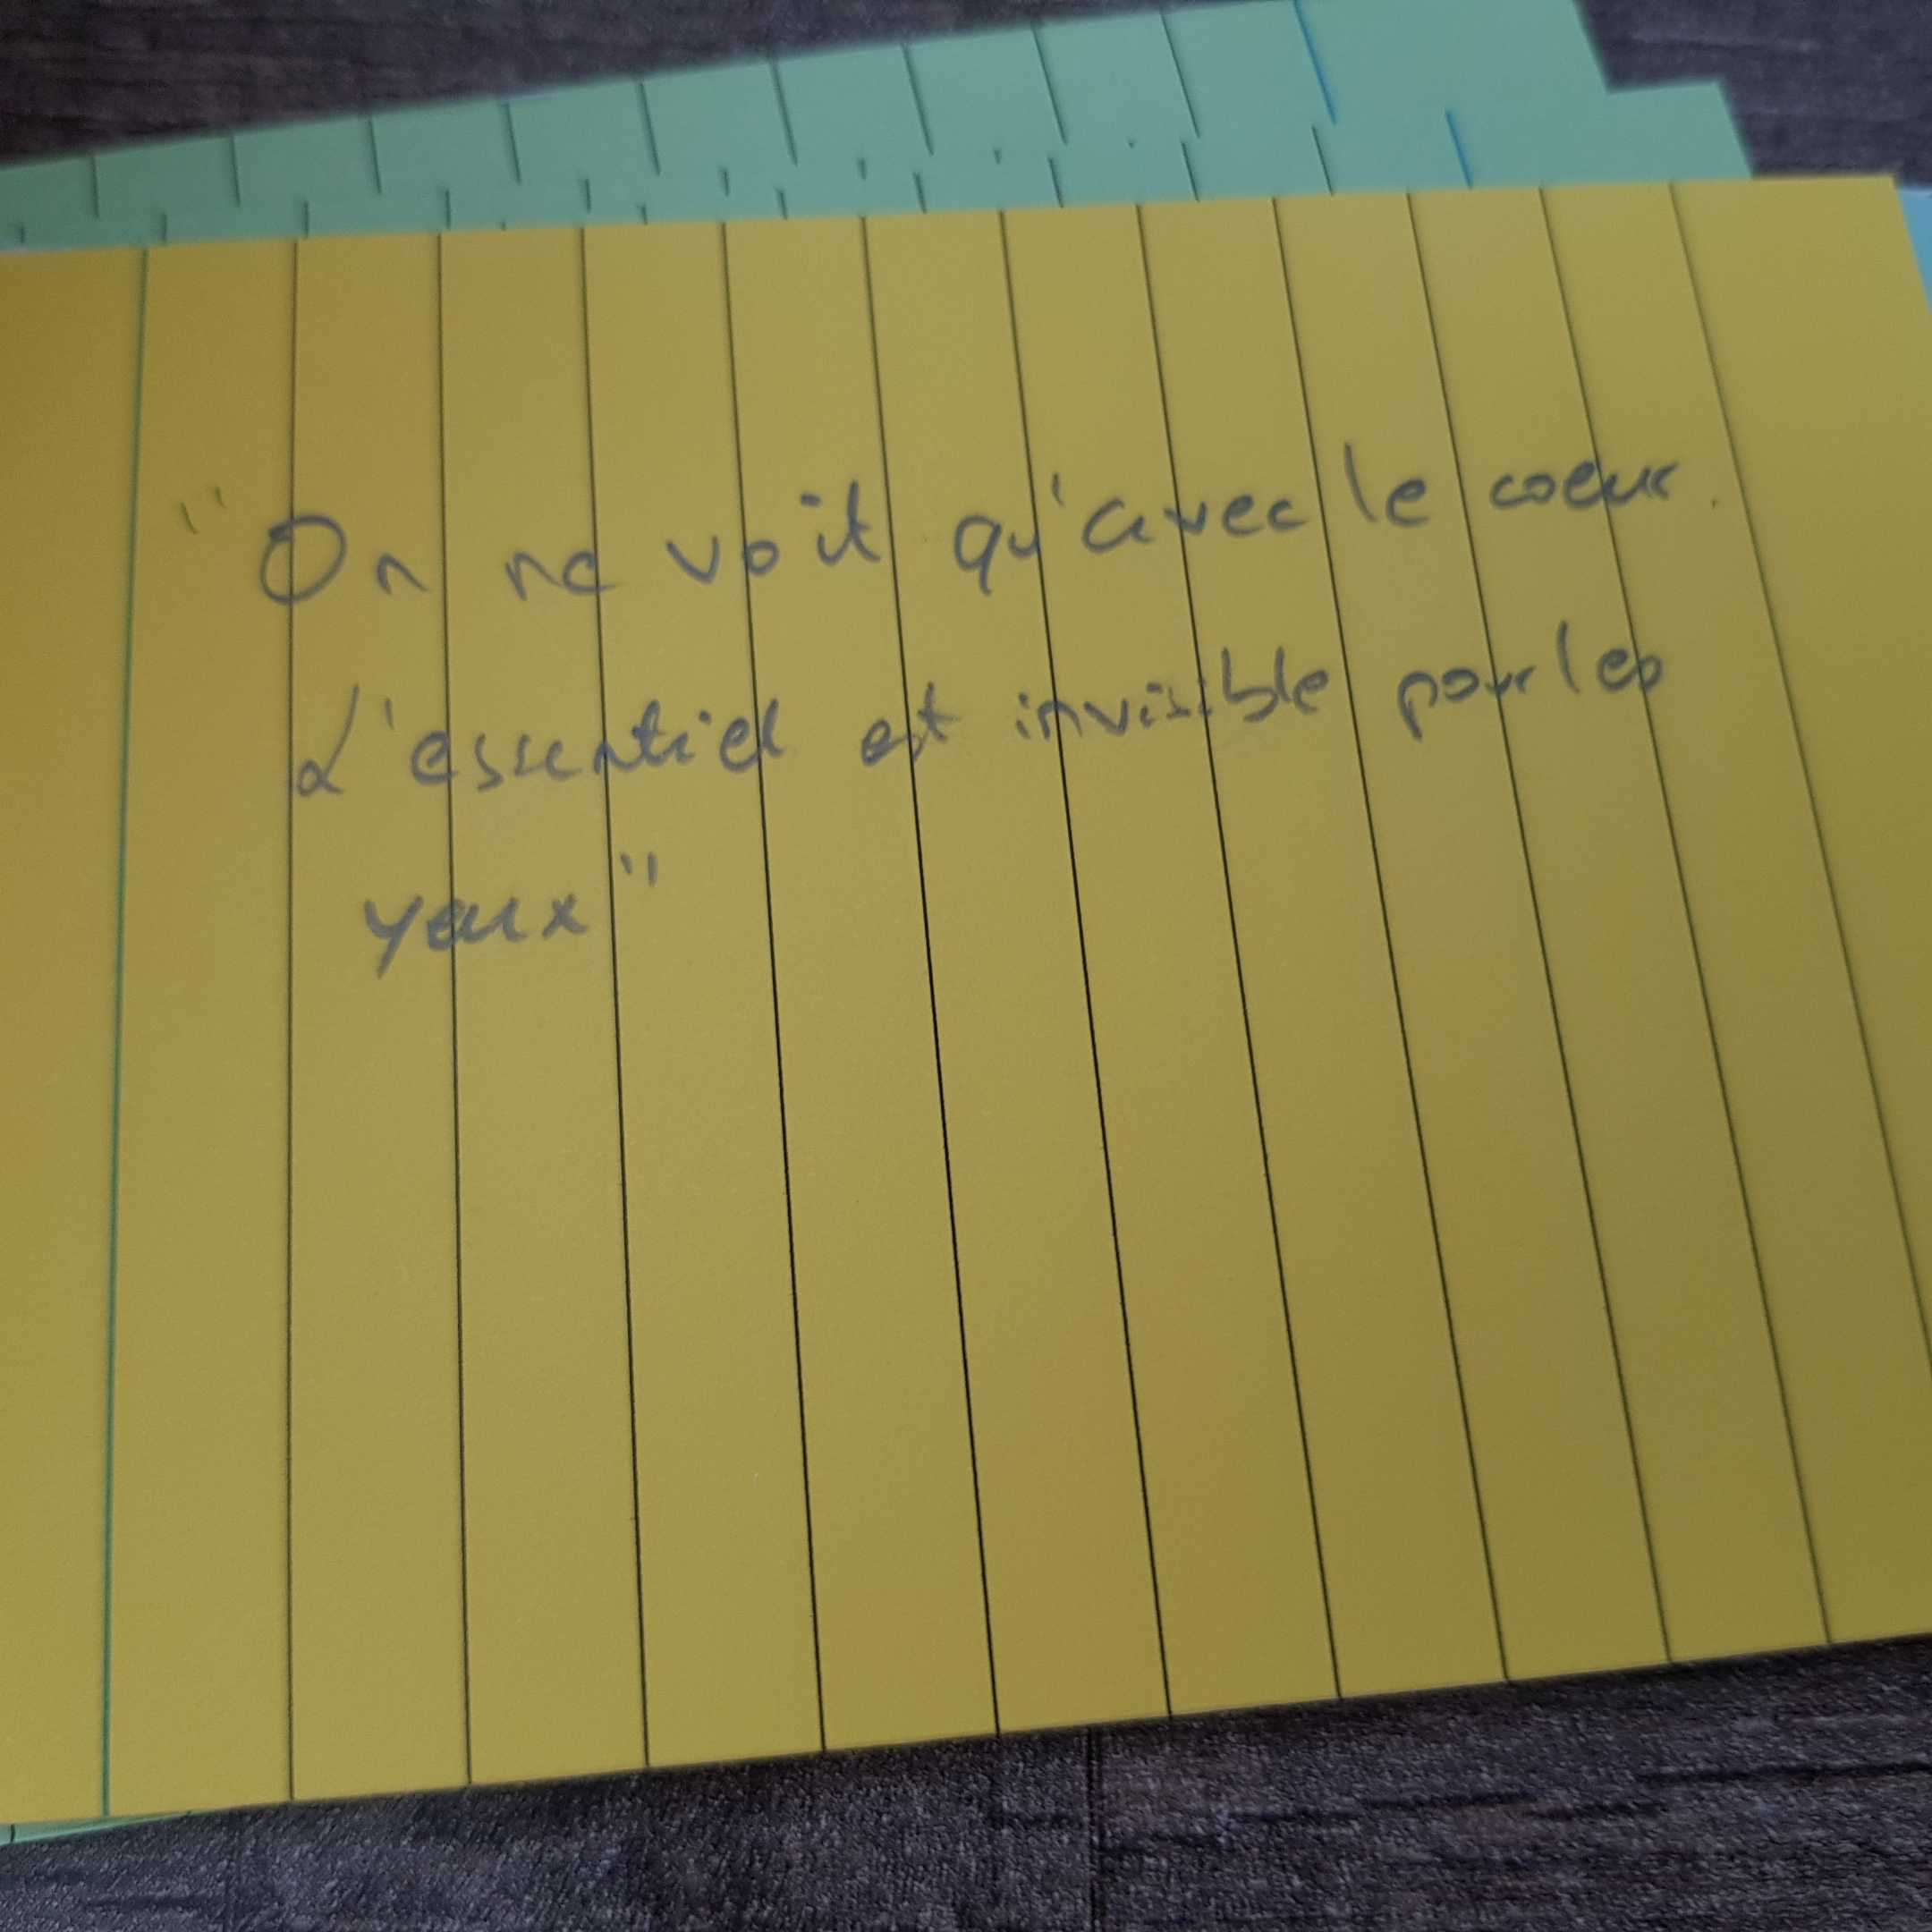 "On ne voit qu'avec le coeur.
L'essentiel est invisible pour les
yeux"